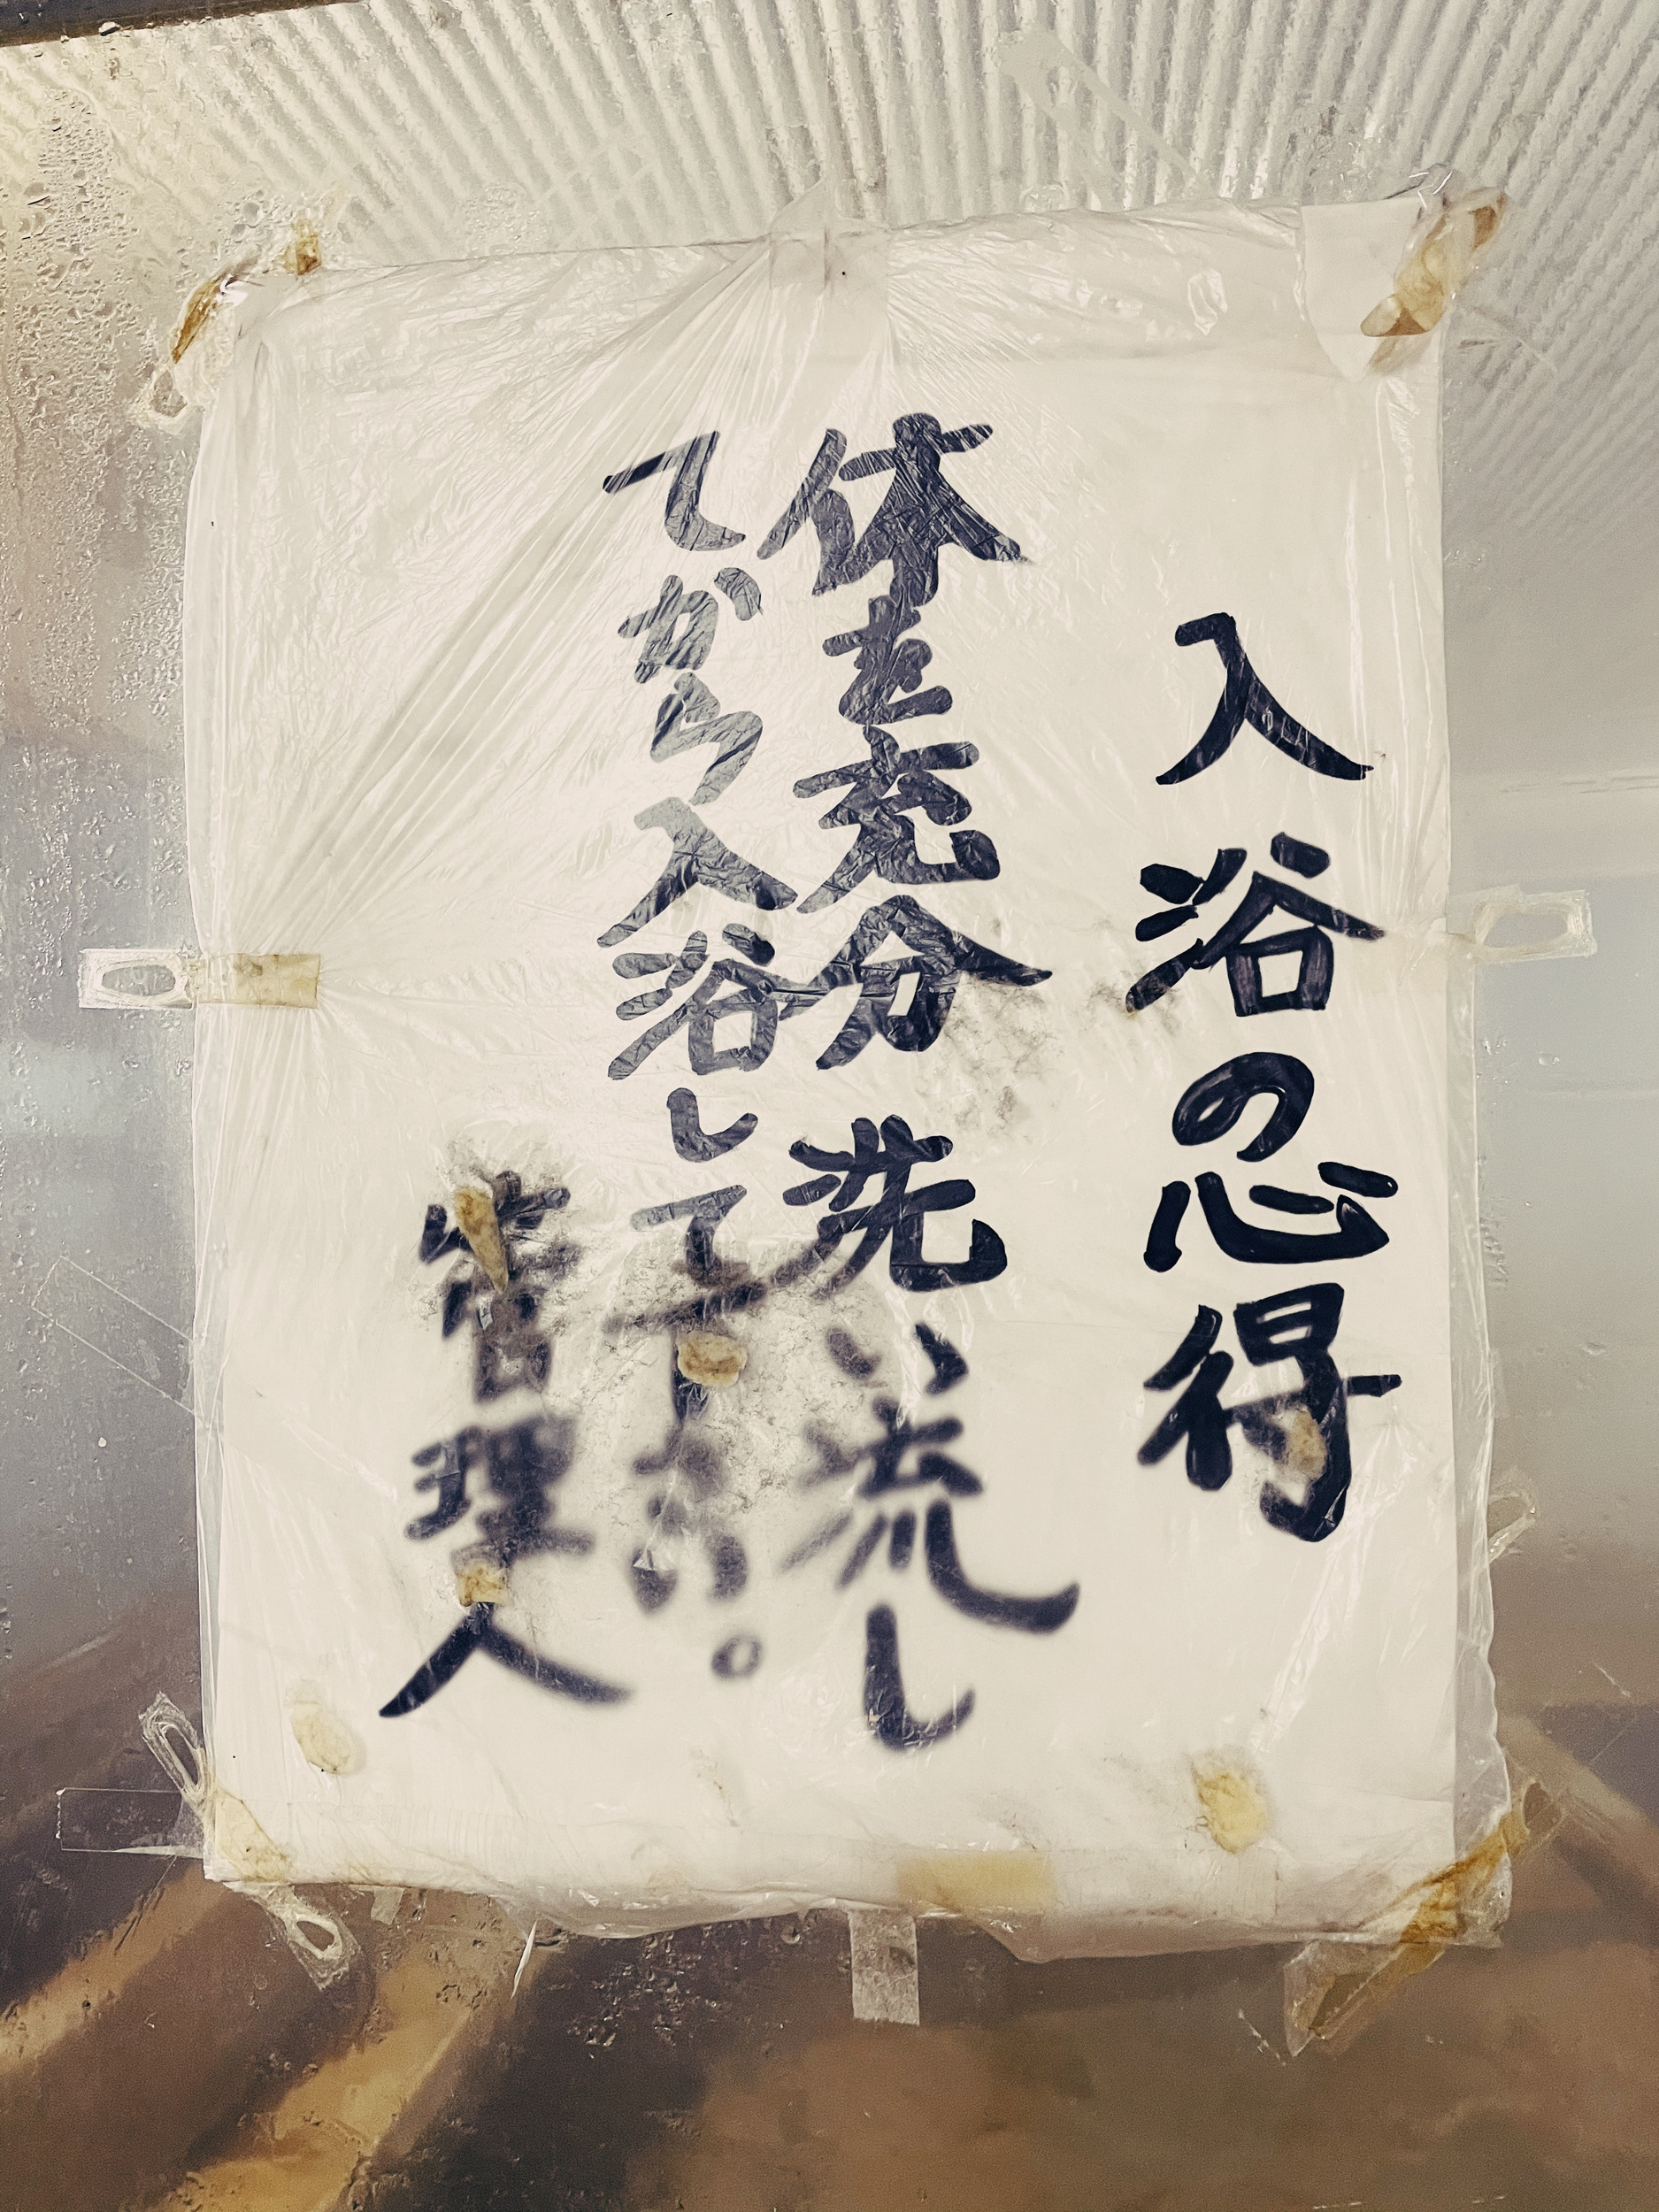 入浴の心得
体を充分洗い流し
てから入浴して下さい。
管理人